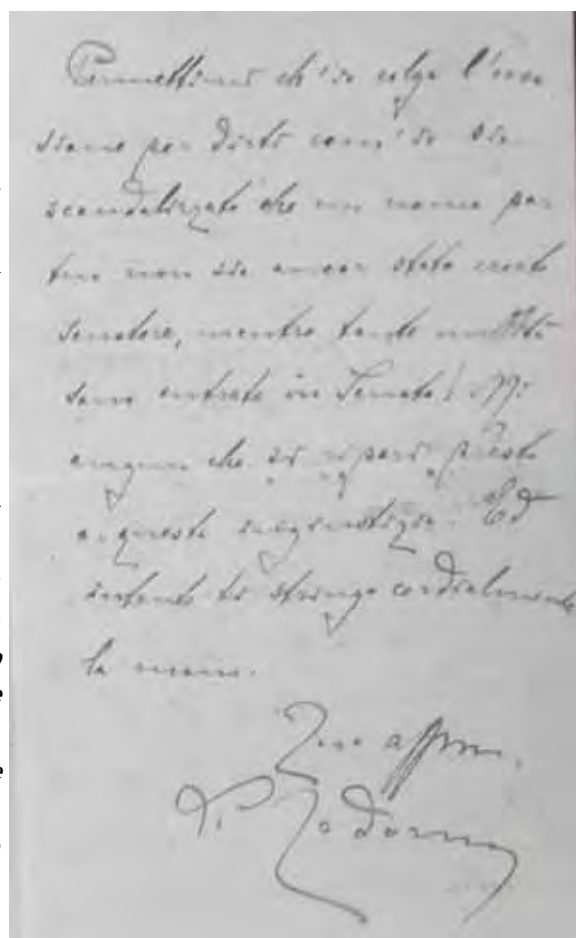 Permettimi ch'io colga l'occa
sione per dirti com'io sia
scandalizzato che un uomo par
tuo non sia ancor stato creato
Senatore, mentre tante nullità
sono entrate in Senato! Mi
auguro che si ripari presto
a questa ingiustizia. Ed
intanto ti stringo cordialmente
la mano.
Tuo affmo.
Cadorna